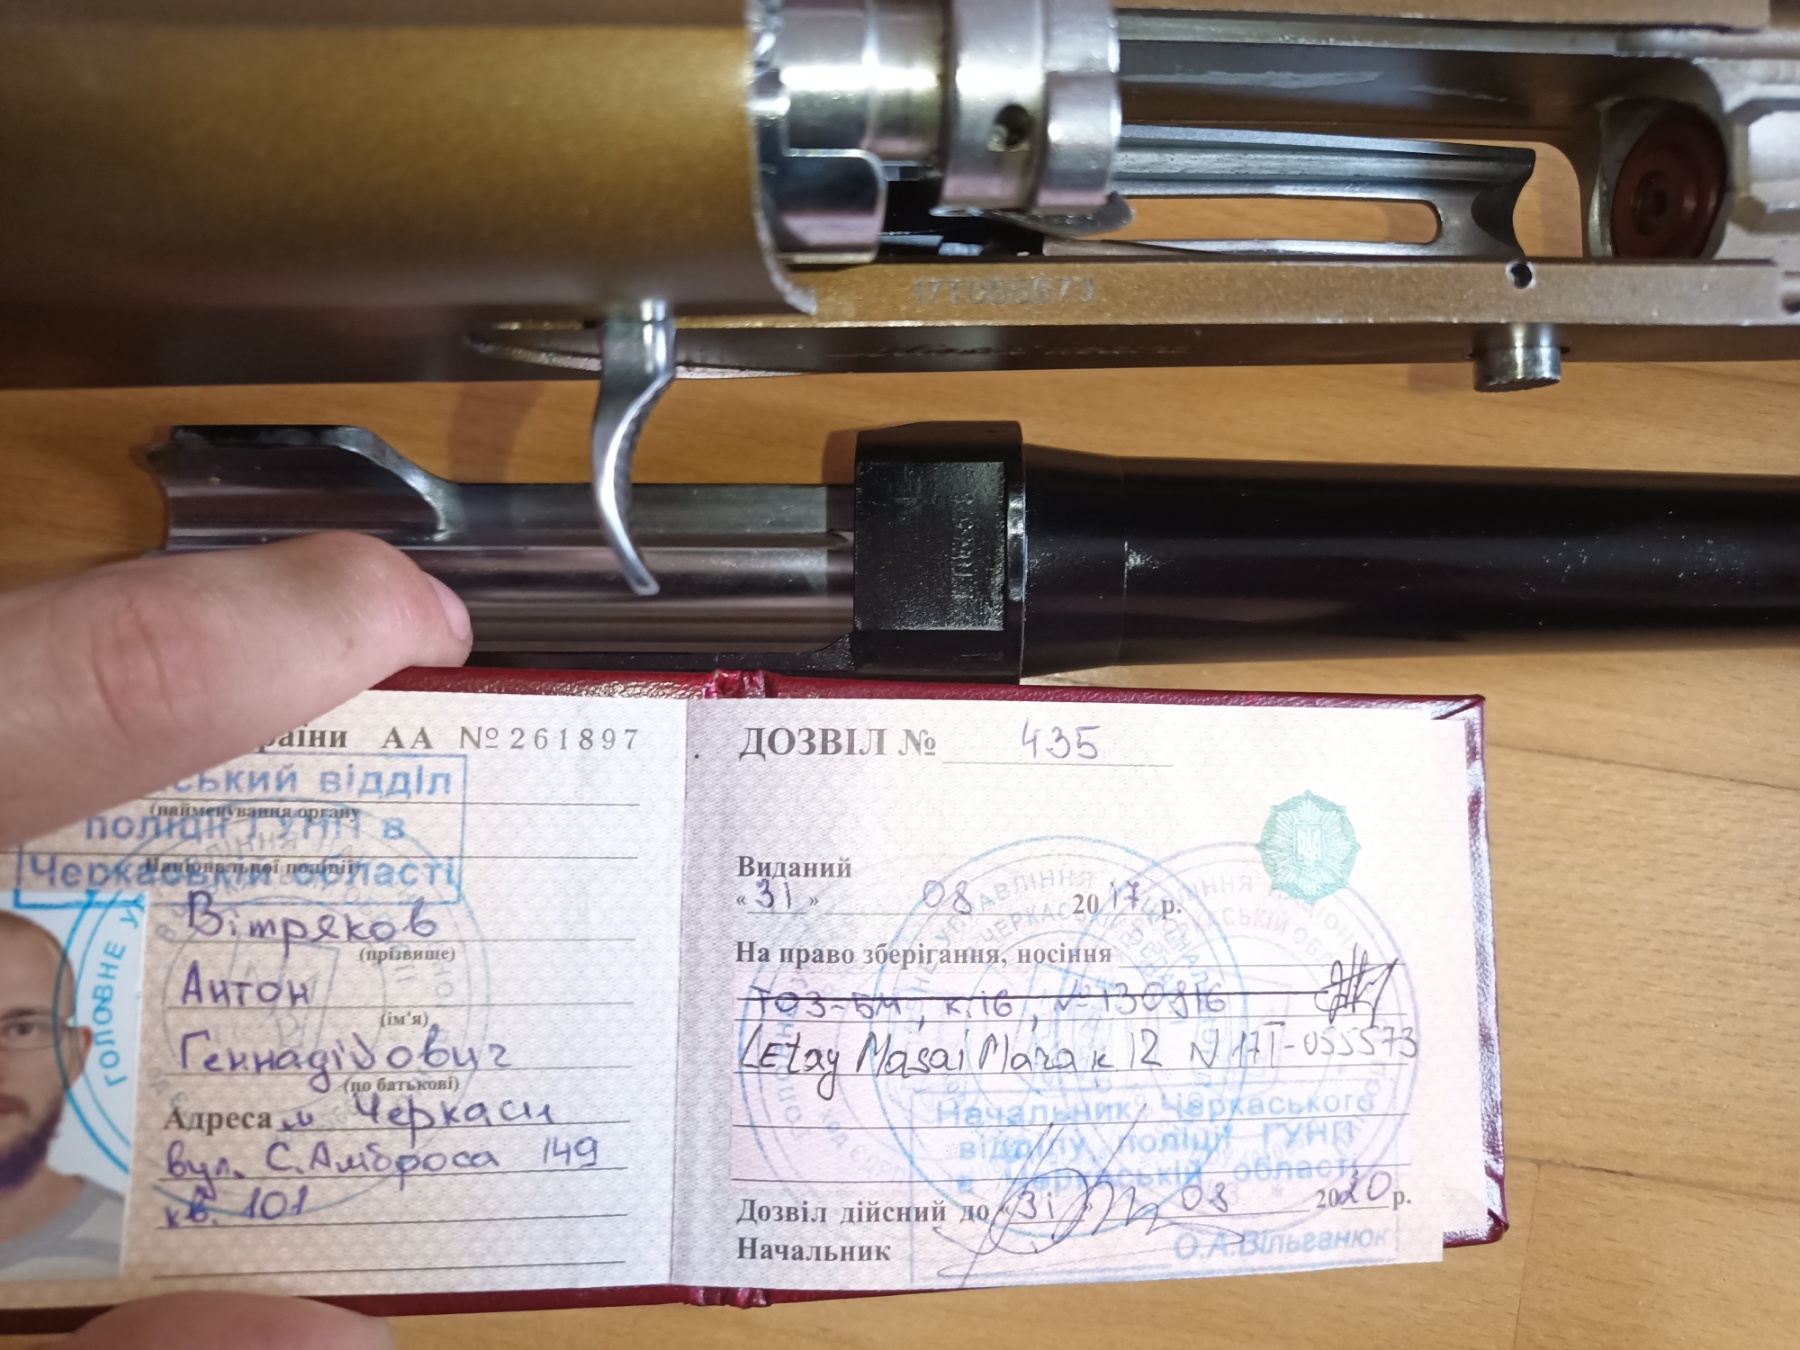 17T055673
раїни АА № 261897
ський відділ
(найменування органу
поліції ГУНП в
Національної поліції)
Черкаській області
Вітряков
(прізвище)
Антон
(ім'я)
Геннадійович
(по батькові)
Адреса м Черкаси
вул. С.Амброса 149
кв. 101
ДОЗВІЛ № 435
Виданий
«31» 08 2017 р.
На право зберігання, носіння
ТОЗ-БМ, к.16, № 130816
LEtay Masai Mara к 12 N 17T-055573
Начальник Черкаського
відділу поліції ГУНП
в Черкаській області
Дозвіл дійсний до «31» 08 2020 р.
Начальник
О.А.Вільганюк